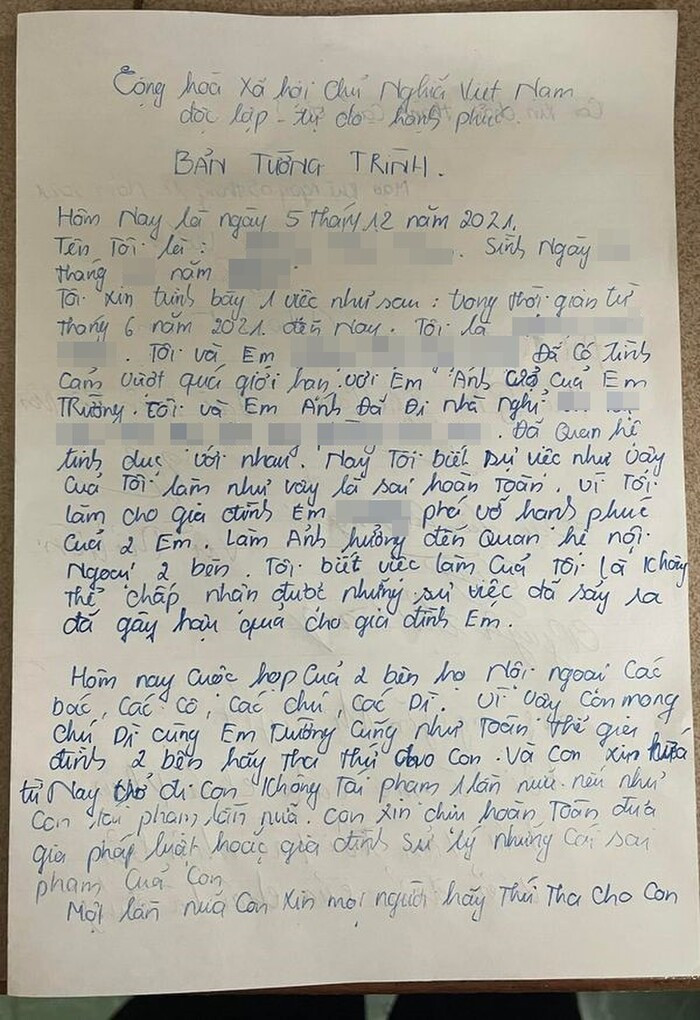 Cộng hoà Xã hội Chủ Nghĩa Việt Nam
độc lập - tự do - hạnh phúc.
BẢN TƯỜNG TRÌNH.
Hôm Nay là ngày 5 tháng 12 năm 2021.
Tên Tôi là : Sinh Ngày
tháng năm
Tôi xin trình bày 1 việc như sau : trong thời gian từ
tháng 6 năm 2021. đến Nay. Tôi là
. Tôi và Em Đã Có tình
Cảm vượt quá giới hạn với Em Ánh của Em
TRường. Tôi và Em Ánh Đã Đi nhà nghỉ
. Đã Quan hệ
tình dục với nhau. Nay Tôi biết sự việc như vậy
Của Tôi làm như vậy là sai hoàn toàn. vì Tôi
làm cho gia đình Em phá vỡ hạnh phúc
Của 2 Em. Làm Ảnh hưởng đến Quan hệ nội
Ngoại 2 bên. Tôi biết việc làm Của Tôi là không
thể chấp nhận được những sự việc đã sảy ra
đã gây hậu quả cho gia đình Em.
Hôm nay cuộc họp Của 2 bên họ Nội ngoại Các
bác, Các cô, Các chú, Các Dì. Vì vậy Con mong
chú Dì cùng Em Trường Cũng như Toàn thể gia
đình 2 bên hãy Tha thứ cho Con. Và Con xin hứa
từ Nay trở đi Con Không Tái phạm 1 lần nữa. nếu như
Con tái phạm lần nữa. Con xin chịu hoàn Toàn đưa
gia pháp luật hoặc gia đình Sử lý những Cái sai
phạm Của Con
Một lần nữa Con xin mọi người hãy Thứ Tha cho Con